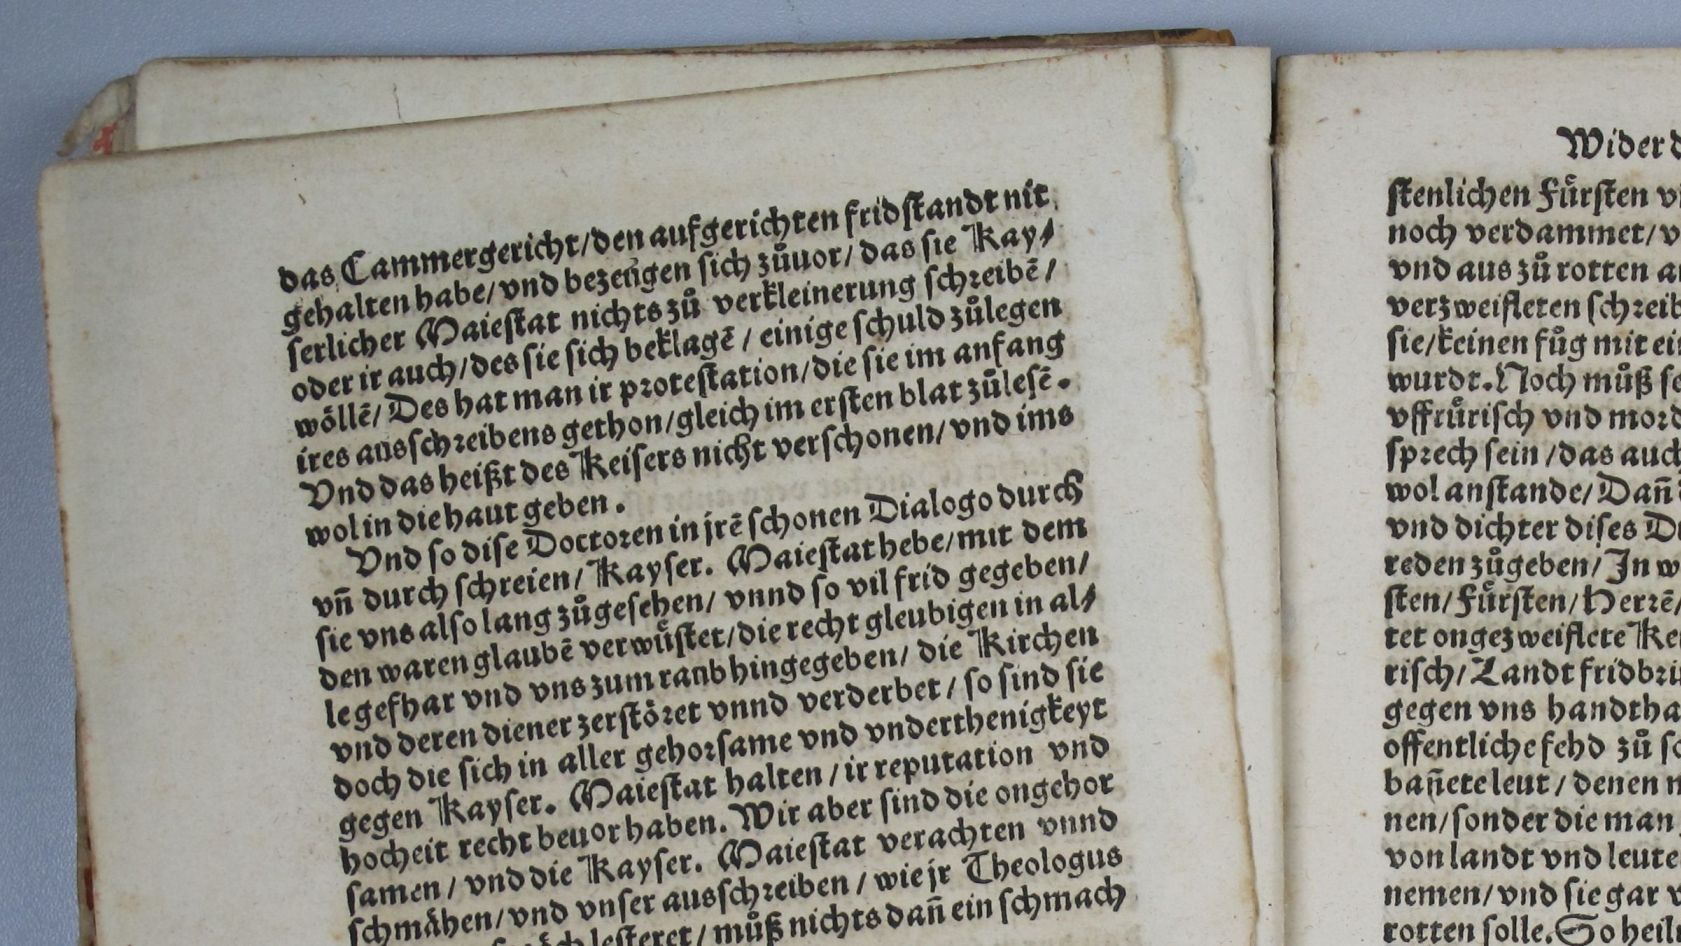 das Cammergericht/den aufgerichten fridstandt nit
gehalten habe/vnd bezeugen sich zůuor/das sie Kay⸗
serlicher Maiestat nichts zů verkleinerung schreibē/
oder ir auch/des sie sich beklagē/einige schuld zůlegen
wöllē/Des hat man ir protestation/die sie im anfang
ires ausschreibens gethon/gleich im ersten blat zůlesē.
Vnd das heißt des Keisers nicht verschonen/vnd ims
wol in die haut geben.
Vnd so dise Doctoren in jrē schonen Dialogo durch
vn̄ durch schreien/Kayser. Maiestat hebe/mit dem
sie vns also lang zůgesehen/vnnd so vil frid gegeben/
den waren glaubē verwůstet/die recht gleubigen in al⸗
le gefhar vnd vns zum raub hingegeben/die Kirchen
vnd deren diener zerstöret vnnd verderbet/so sind sie
doch die sich in aller gehorsame vnd vnderthenigkeyt
gegen Kayser. Maiestat halten/ir reputation vnd
hocheit recht beuor haben. Wir aber sind die ongehor
samen/vnd die Kayser. Maiestat verachten vnnd
schmähen/vnd vnser ausschreiben/wie jr Theologus
lesteret/můß nichts dan̄ ein schmach
Wider d
stenlichen Fürsten v
noch verdammet/v
vnd aus zů rotten a
verzweifleten schreib
sie/keinen fůg mit ei
wurdt. Noch můß se
vffrůrisch vnd mord
sprech sein/das auch
wol anstande/Dan̄
vnd dichter dises D
reden zůgeben/In w
sten/Fürsten/Herrē/
tet ongezweiflete Ke
risch/Landt fridbri
gegen vns handtha
offentliche fehd zů s
ban̄ete leut/denen n
nen/sonder die man
von landt vnd leute
nemen/vnd sie gar v
rotten solle. So heil